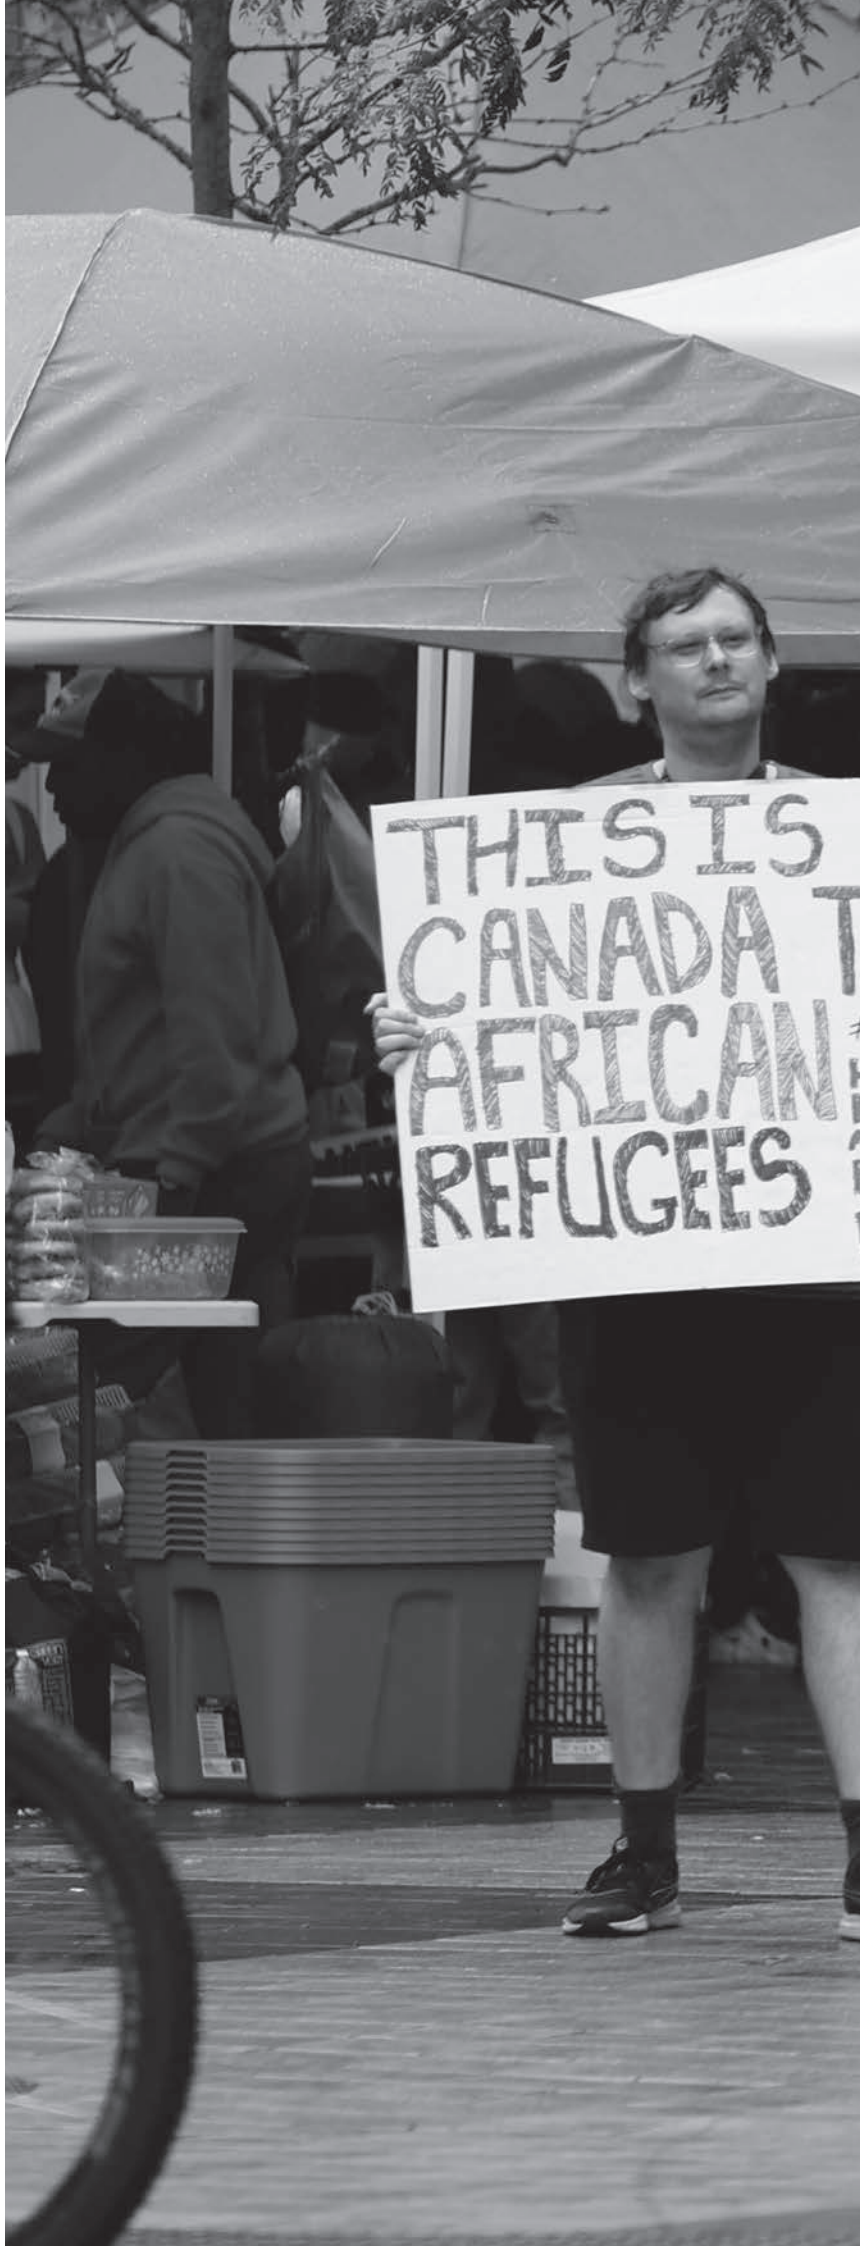 THIS IS
CANADA T
AFRICAN
REFUGEES